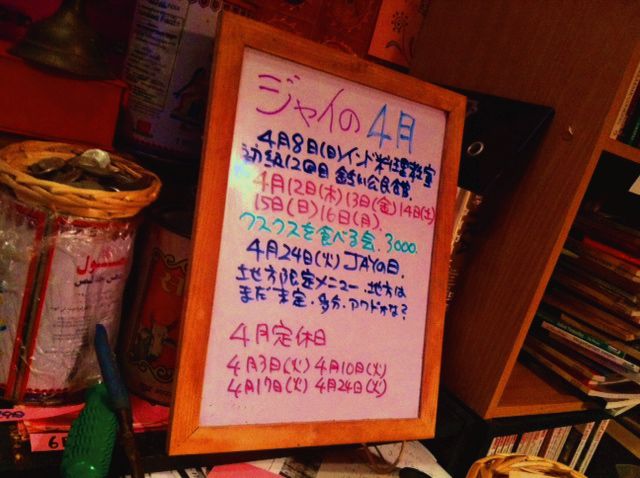 ジャイの4月
4月8日(日)インド料理教室
初級12回目 公民館.
4月12日(木)13日(金)14日(土)
15日(日)16日(月)
クスクスを食べる会. 3000.
4月24日(火)JAYの日.
地方限定メニュー.地方は
まだ未定.多分.アウドかな?
4月定休日
4月3日(火) 4月10日(火)
4月17日(火) 4月24日(火)